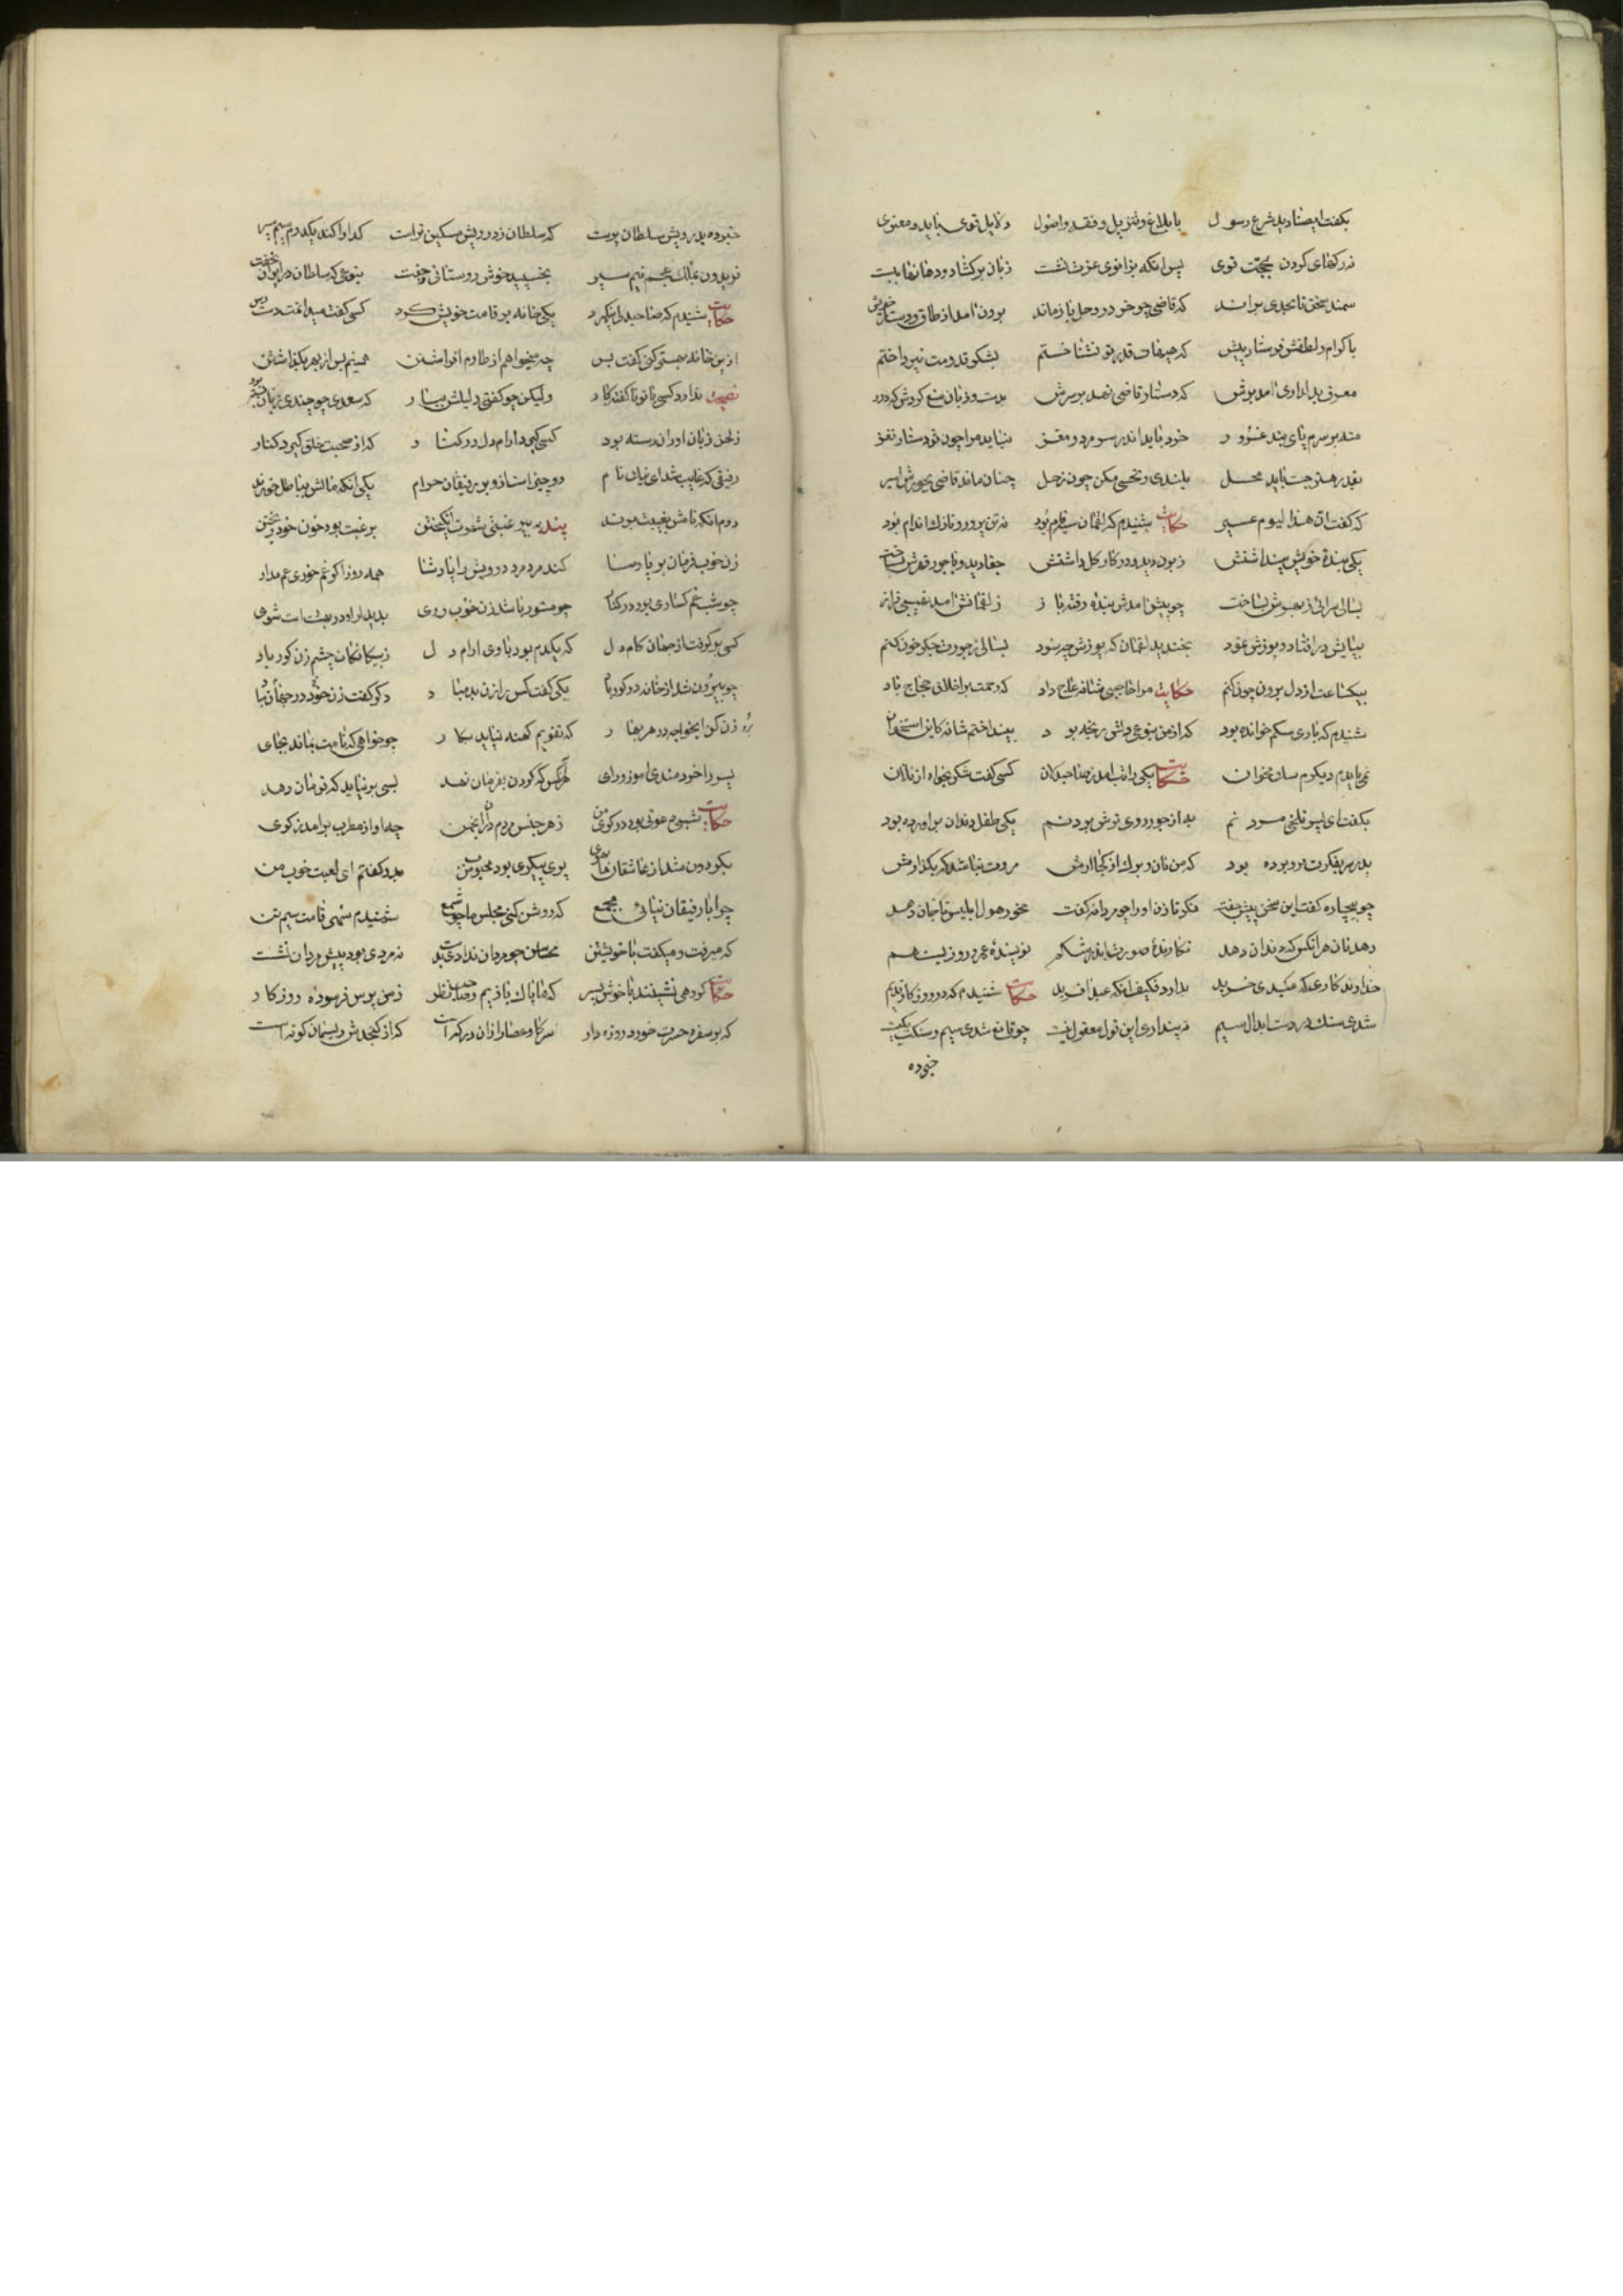 بکفت ای صنادید شرع رسول بابلاغ و تنزیل و فقه و اصول دلایل قوی باید و معنوی
نه رکهای کردن بحجت قوی پس آنکه بزانوی عزت نشست زبان برکشاد و دهانها ببست
سمند سخن تا بجایی براند که قاضی چو خر در وحل بازماند برون آمد از طاق و دستار خویش
باکرام و لطفش فرستاد پیش که هیهات قدر تو نشناختم بشکر قدومت نپرداختم
معرف بدلداری آمد برش که دستار قاضی نهد بر سرش بدست و زبان منع کردش که دور
منه بر سرم پای بند غرور خرد باید اندر سر مرد و مغز نباید مرا چون تو دستار نغز
بقدر هنر جست باید محل بلندی و نحسی مکن چون زحل چنان ماند قاضی بجورش اسیر
که کفت ان هذا لیوم عسیر حکایت شنیدم که لقمان سیه‌فام بود نه تن پرور و نازک اندام بود
یکی بندهٔ خویش پنداشتش زبون دید و در کار کل داشتش جفا دید و با جور قهرش بساخت
بسالی سرائی ز بهرش بساخت چو پیش آمدش بندهٔ رفته باز ز لقمانش آمد نهیبی فراز
بپایش در افتاد و پوزش نمود بخندید لقمان که پوزش چه سود بسالی ز جورت جکر خون کنم
بیکساعت از دل برون چون کنم حکایت مرا حاجیی شانهٔ عاج داد که رحمت بر اخلاق حجاج باد
شنیدم که باری سکم خوانده بود که از من بنوعی دلش رنجه بود بینداختم شانه کاین استخوان
نمی‌بایدم دیکرم سک مخوان حکایت یکی را تب آمد ز صاحبدلان کسی کفت شکر بخواه از فلان
بکفت ای پسر تلخی مردنم به از جور روی ترش بردنم یکی طفل دندان برآورده بود
پدر سر بفکرت فرو برده بود که من نان و برک از کجا آرمش مروت نباشد که بکذارمش
چو بیچاره کفت این سخن پیش جفت نکر تا زن او را چه مردانه کفت مخور هول ابلیس تا جان دهد
دهد نان هر آنکس که دندان دهد نکارندهٔ صورت اندر شکم نویسندهٔ عمر و روزیست هم
خداوند کاری که عبدی خرید بدارد فکیف آنکه عبد آفرید حکایت شنیدم که در روزکار قدیم
شدی سنک در دست ابدال سیم نپنداری این قول معقول نیست چو قانع شدی سیم و سنکت یکیست
خبر ده
خبر ده بدرویش سلطان پرست که سلطان ز درویش مسکین‌تر است کدا را کند یکدرم سیم سیر
فریدون بملک عجم نیم سیر بخسپید خوش روستائی و جفت بنوعی که سلطان در ایوان نخفت
حکایت شنیدم که صاحبدلی نیکمرد یکی خانه بر قامت خویش کرد کسی کفت میدانمت دسترس
ازین خانه بهتر کنی کفت بس چه میخواهم از طارم افراشتن همینم بس از بهر بکذاشتن
نصیحت ندارد کسی با تو ناکفته کار ولیکن چو کفتی دلیلش بیار که سعدی چو چندی زبان بسته بود
ز طعن زبان آوران رسته بود کسی کیرد آرام دل در کنار که از صحبت خلق کیرد کنار
رفیقی که غایب شد ای نیکنام دو چیز است ازو بر رفیقان حرام یکی آنکه مالش بباطل خورند
دوم آنکه نامش بغیبت برند پند نه بی رغبتی شهوت انکیختن برغبت بود خون خود ریختن
زن خوب فرمان بر پارسا کند مرد درویش را پادشا همه روز اکر غم خوری غم مدار
چو شب غمکسارت بود در کنار چو مستور باشد زن خوب روی بدیدار او در بهشت است شوی
کسی برکرفت از جهان کام دل که یکدم بود با وی آرام دل ز بیکانکان چشم زن کور باد
چو بیرون شد از خانه در کور باد یکی کفت کس را زن بد مباد دکر کفت زن خود در جهان مباد
زن نو کن ایخواجه در هر بهار که تقویم کهنه نیاید بکار چو خواهی که نامت بماند بجای
پسر را خردمندی آموز و رای هر آنکس که کردن بفرمان نهد بسی بر نیاید که فرمان دهد
حکایت شبی دعوتی بود در کوی من ز هر جنس مردم درآن انجمن چو آواز مطرب برآمد ز کوی
بکردون شد از عاشقان های هوی پری پیکری بود محبوب من بدو کفتم ای لعبت خوب من
چرا با رفیقان نیائی بجمع که روشن کنی مجلس ما چو شمع شنیدم سهی قامت سیم تن
که میرفت و میکفت با خویشتن محاسن چو مردان نداری بدست نه مردی بود پیش مردان نشست
حکایت کروهی نشینند با خوش پسر که ما پاک بازیم و صاحب نظر ز من پرس فرسوده روزکار
که بر سفره حسرت خورد روزه دار سرکاو عصار از آن در که است که از کنجدش ریسمان کوته است